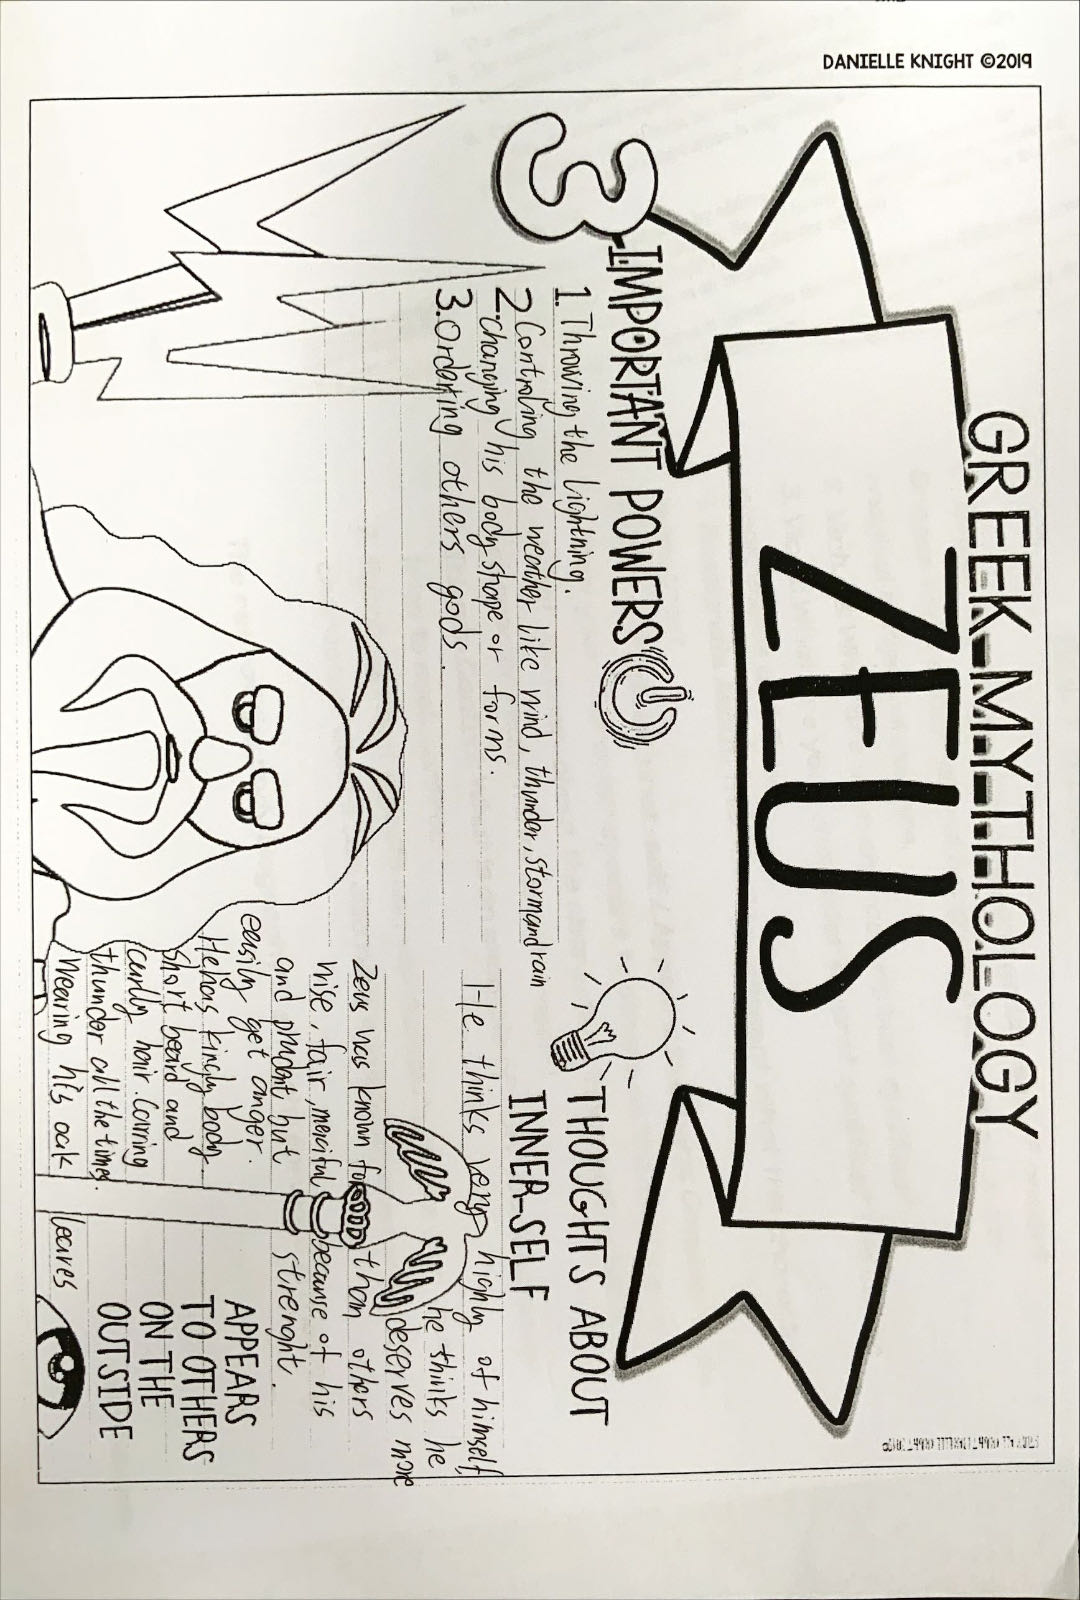 DANIELLE KNIGHT ©2019
GREEK MYTHOLOGY
ZEUS
3 IMPORTANT POWERS
1. Throwing the Lightning.
2. Controling the weather like wind, thunder, storm and rain
- changing his body shape or forms.
3. Ordering others gods.
THOUGHTS ABOUT
INNER-SELF
He thinks very highly of himself,
he thinks he
deserves more
than others
because of his
strenght.
Zeus was known for
wise, fair, merciful
and prudent but
easily get anger.
He has kingly body
short beard and
curly hair. Carring
thunder all the times.
Wearing his oak leaves
APPEARS
TO OTHERS
ON THE
OUTSIDE